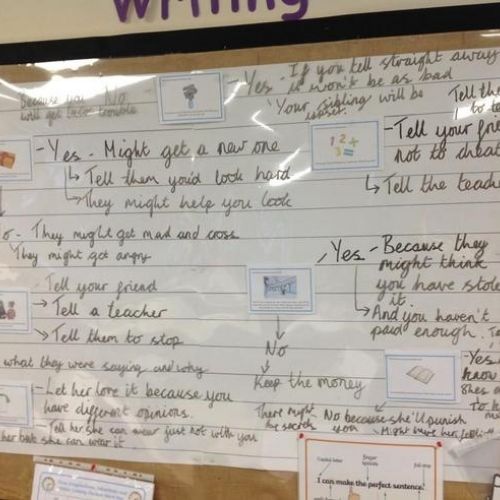 writing
Yes - If you tell straight away
it won't be as bad
Because you No
will get trouble
"Your sibling will be
upset.
Tell the
1 2 3
=
- Tell your frie
not to cheat
↳ Tell the teache
- Yes - Might get a new one
↳ Tell them you'd look hard
↳ They might help you look
o - They might get mad and cross
They might got angry
Yes - Because they
might think
you have stole
it
↳ And you haven't
paid enough.
Tell your friend
→ Tell a teacher
↘ Tell them to stop
No
Keep the money
what they were saying and why
- Let her love it because you
have different opinions.
- Tell her she can wear just not with you
her but she can wear it
There might
be secrets
No because she'll punish
you
Might
her
- Yes
know
Shes
To
Capital letter
Finger
spaces
Full stop
I can make the perfect sentence.